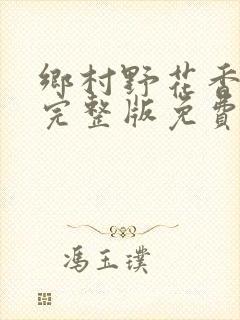 鄉村野花香
完整版免費
馮玉璞